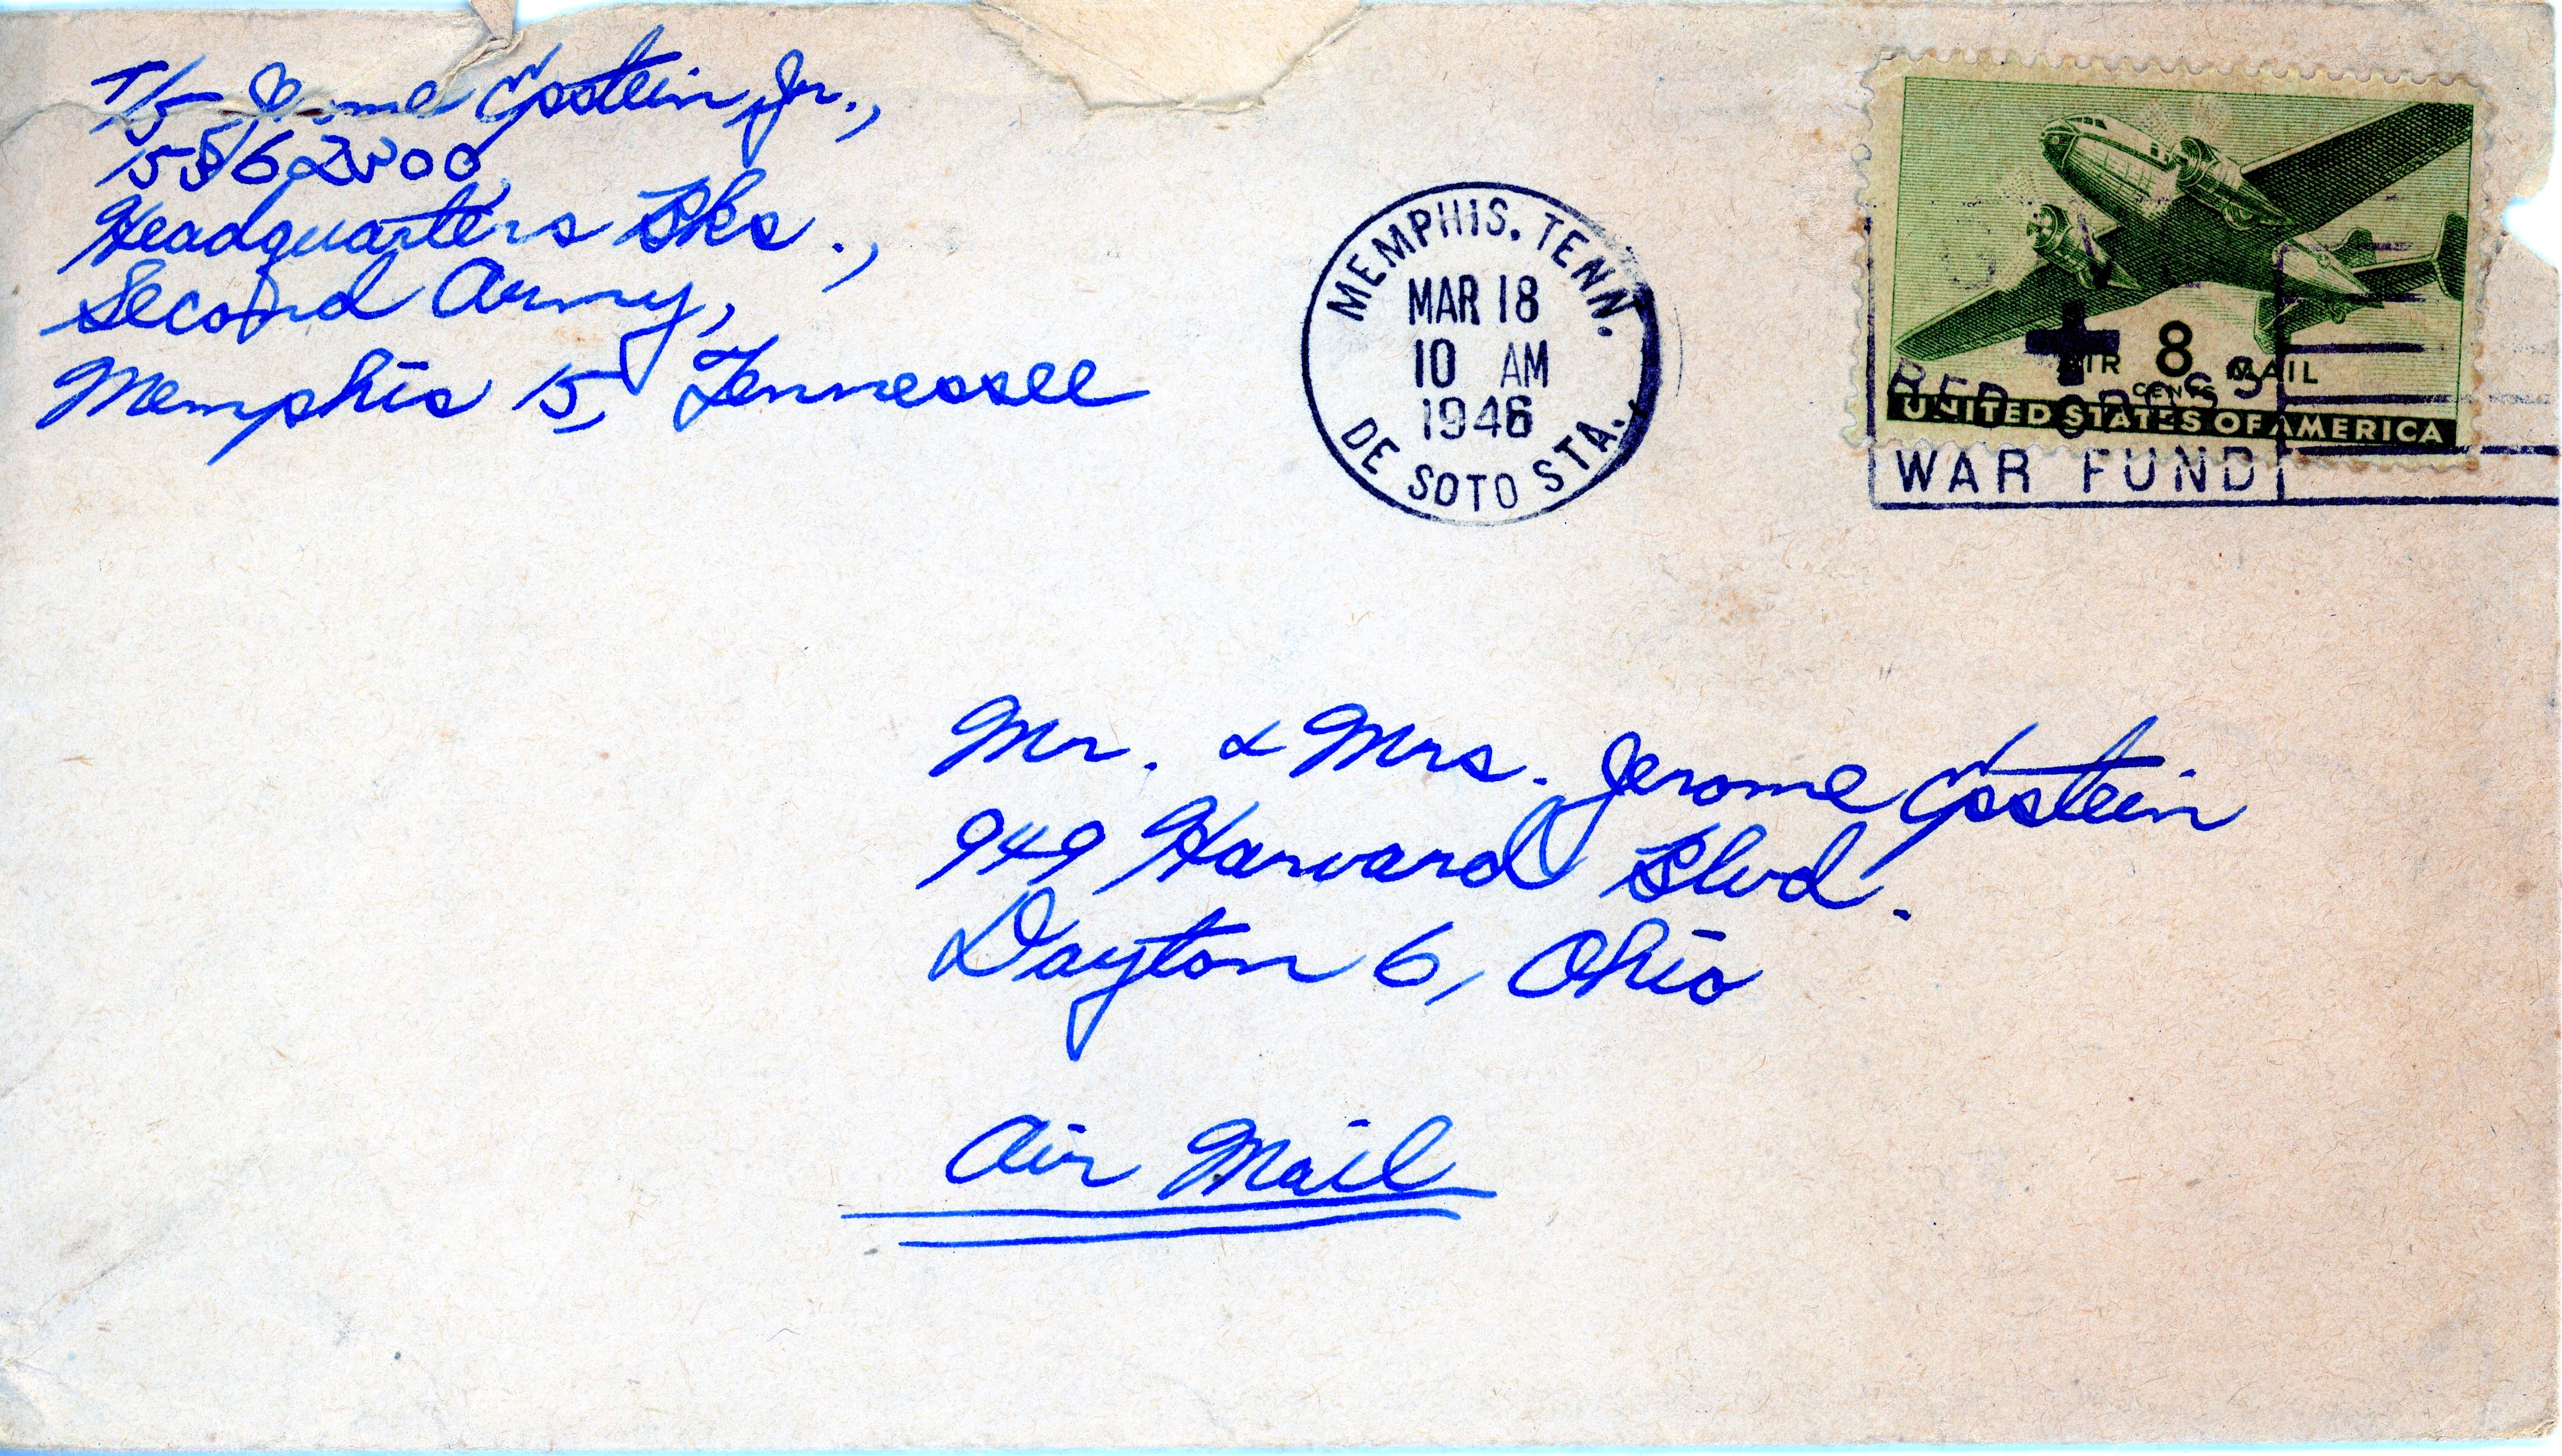 T/5 Jerome Epstein Jr.,
Headquarters Bks.,
Second Army,
Memphis 15, Tennessee
MEMPHIS, TENN.
MAR 18
10 AM
1946
DE SOTO STA.
AIR 8 MAIL
CENTS
UNITED STATES OF AMERICA
RED CROSS
WAR FUND
Mr. & Mrs. Jerome Epstein
949 Harvard Blvd.
Dayton 6, Ohio
Air Mail